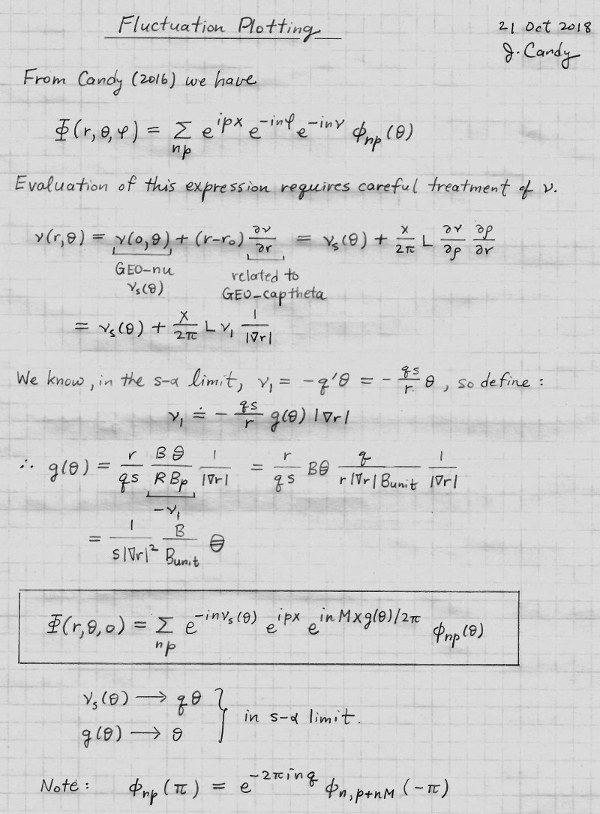 Fluctuation Plotting
21 Oct 2018
J. Candy
From Candy (2016) we have
Φ(r, θ, φ) = Σ_{np} e^{ipx} e^{-inφ} e^{-inν} ϕ_{np}(θ)
Evaluation of this expression requires careful treatment of ν.
ν(r,θ) = ν(0,θ) + (r-r₀) ∂ν/∂r = ν_s(θ) + x/2π L ∂ν/∂ρ ∂ρ/∂r
GEO-nu related to
ν_s(θ) GEO-captheta
= ν_s(θ) + x/2π L ν₁ 1/|∇r|
We know, in the s-α limit, ν₁ = -q'θ = - qs/r θ, so define :
ν₁ ≐ - qs/r g(θ) |∇r|
∴ g(θ) = r/qs BΘ/RB_p 1/|∇r| = r/qs BΘ q/r|∇r|B_unit 1/|∇r|
-ν₁
= 1/s|∇r|² B/B_unit Θ
Φ(r,θ,0) = Σ_{np} e^{-inν_s(θ)} e^{ipx} e^{inMxg(θ)/2π} ϕ_{np}(θ)
ν_s(θ) → qθ
g(θ) → θ } in s-α limit.
Note : ϕ_{np}(π) = e^{-2πinq} ϕ_{n,p+nM}(-π)